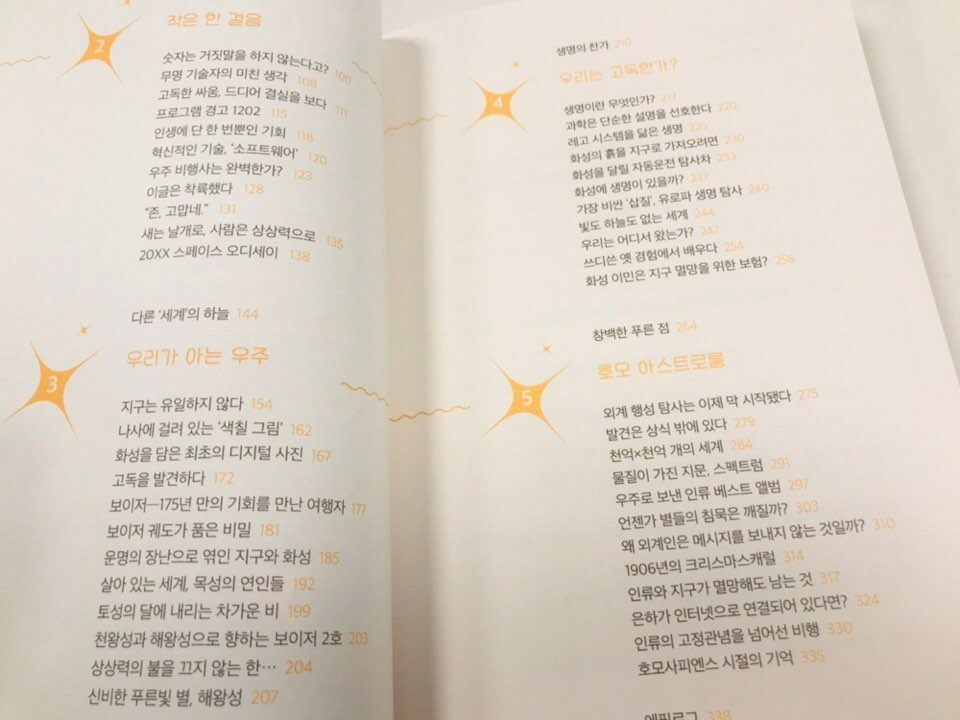 2
작은 한 걸음
숫자는 거짓말을 하지 않는다고? 100
무명 기술자의 미친 생각 108
고독한 싸움, 드디어 결실을 보다 111
프로그램 경고 1202 115
인생에 단 한 번뿐인 기회 118
혁신적인 기술, '소프트웨어' 120
우주 비행사는 완벽한가? 123
이글은 착륙했다 128
"존, 고맙네." 131
새는 날개로, 사람은 상상력으로 135
20XX 스페이스 오디세이 138
다른 '세계'의 하늘 144
3
우리가 아는 우주
지구는 유일하지 않다 154
나사에 걸려 있는 '색칠 그림' 162
화성을 담은 최초의 디지털 사진 167
고독을 발견하다 172
보이저—175년 만의 기회를 만난 여행자 177
보이저 궤도가 품은 비밀 181
운명의 장난으로 엮인 지구와 화성 185
살아 있는 세계, 목성의 연인들 192
토성의 달에 내리는 차가운 비 199
천왕성과 해왕성으로 향하는 보이저 2호 203
상상력의 불을 끄지 않는 한… 204
신비한 푸른빛 별, 해왕성 207
생명의 찬가 210
4
우리는 고독한가?
생명이란 무엇인가? 217
과학은 단순한 설명을 선호한다 220
레고 시스템을 닮은 생명 225
화성의 흙을 지구로 가져오려면 230
화성을 달릴 자동운전 탐사차 233
화성에 생명이 있을까? 237
가장 비싼 '삽질', 유로파 생명 탐사 240
빛도 하늘도 없는 세계 244
우리는 어디서 왔는가? 247
쓰디쓴 옛 경험에서 배우다 254
화성 이민은 지구 멸망을 위한 보험? 258
창백한 푸른 점 264
5
호모 아스트로룸
외계 행성 탐사는 이제 막 시작됐다 275
발견은 상식 밖에 있다 279
천억×천억 개의 세계 284
물질이 가진 지문, 스펙트럼 291
우주로 보낸 인류 베스트 앨범 297
언젠가 별들의 침묵은 깨질까? 303
왜 외계인은 메시지를 보내지 않는 것일까? 310
1906년의 크리스마스캐럴 314
인류와 지구가 멸망해도 남는 것 317
은하가 인터넷으로 연결되어 있다면? 324
인류의 고정관념을 넘어선 비행 330
호모사피엔스 시절의 기억 335
에필로그 338